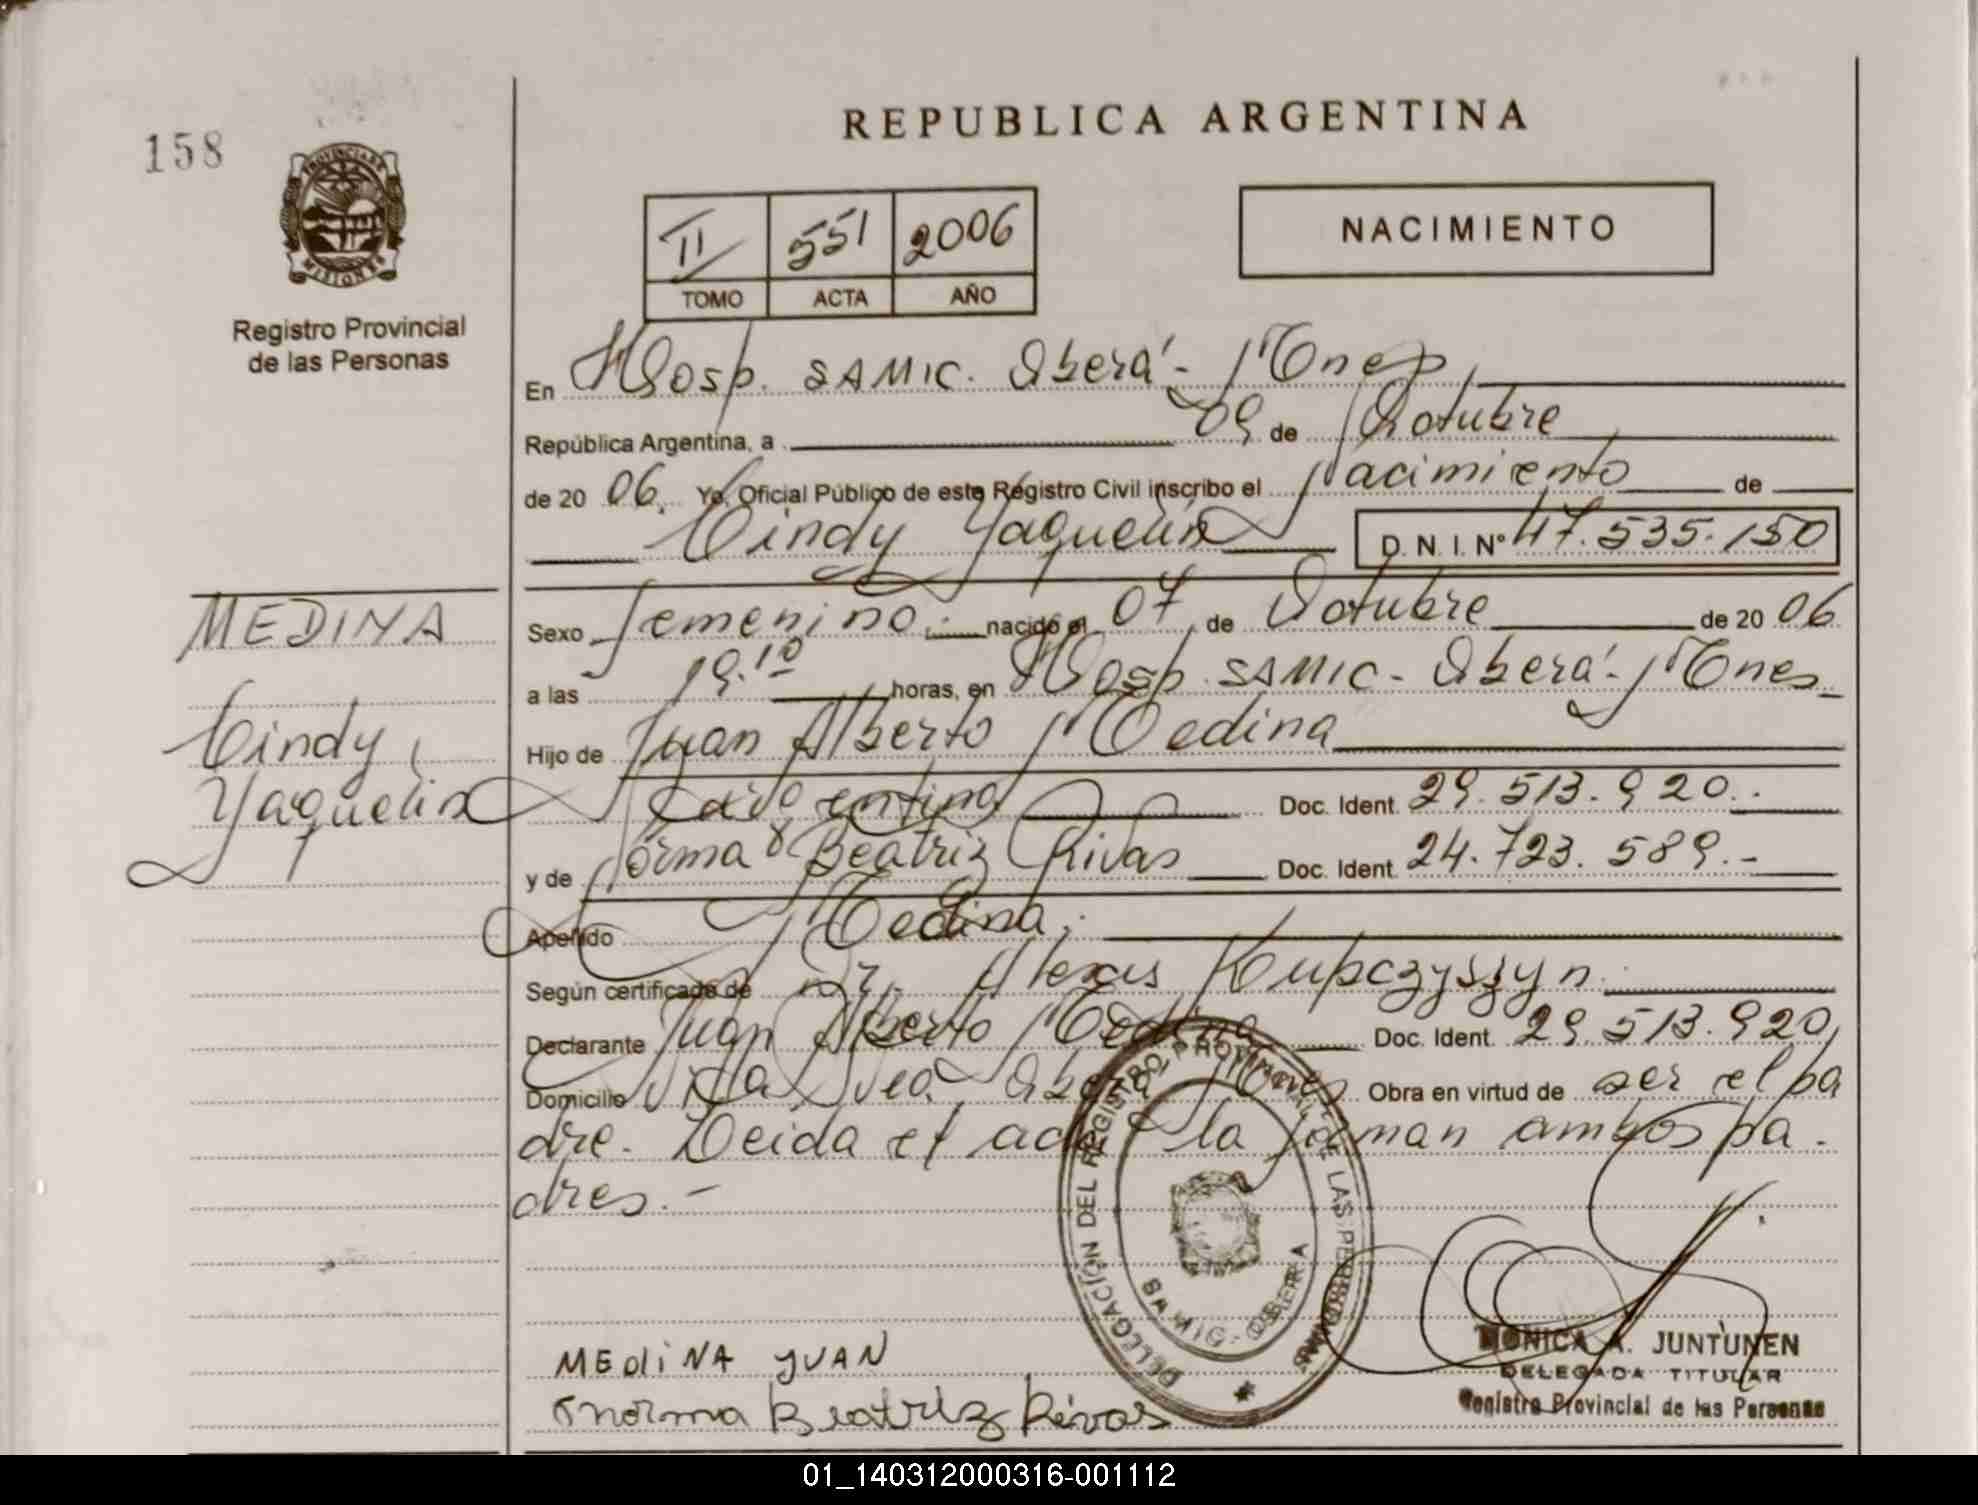 REPUBLICA ARGENTINA
158
PROVINCIA DE
MISIONES
Registro Provincial
de las Personas
II 551 2006
TOMO ACTA AÑO
NACIMIENTO
En Hosp. SAMIC. Oberá - Mnes
República Argentina, a 09 de Octubre
de 20 06. Yo, Oficial Público de este Registro Civil inscribo el Nacimiento de
Cindy Yaquelin D. N. I. N° 47.535.150
MEDINA
Cindy
Yaquelin
Sexo femenino. nacido el 07 de Octubre de 20 06
a las 19.10 horas, en Hosp. SAMIC - Oberá - Mnes
Hijo de Juan Alberto Medina
argentino Doc. Ident. 29.513.920.-
y de Norma Beatriz Rivas Doc. Ident. 24.723.589.-
Apellido Medina.
Según certificado de Alexis
Declarante Juan Alberto Medina Doc. Ident. 29.513.920,
Domicilio Oberá Mnes. Obra en virtud de ser el pa
dre. Leida el acta la firman ambos pa-
dres.-
DELEGACIÓN DEL REGISTRO PROVINCIAL DE LAS PERSONAS
SAMIC - OBERA
MEDINA JUAN
norma Beatriz Rivas
MONICA A. JUNTUNEN
DELEGADA TITULAR
Registro Provincial de las Personas
01_140312000316-001112